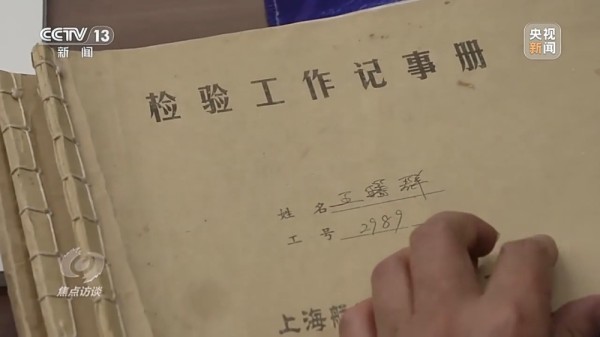 CCTV 13
新闻
央视
新闻
检验工作记事册
姓名 王
工号 2989
上海
焦点访谈